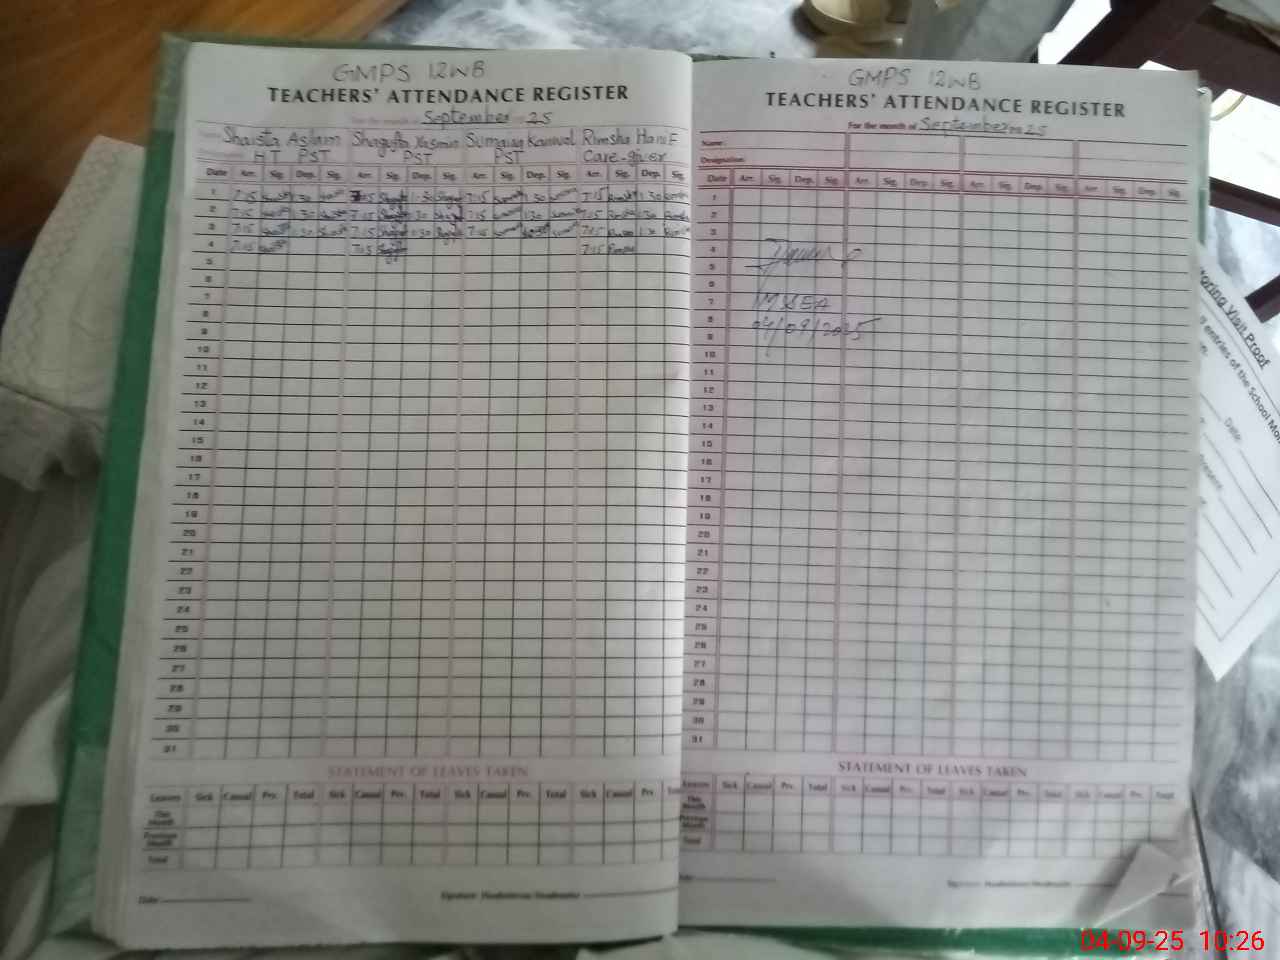 GMPS 12WB
TEACHERS' ATTENDANCE REGISTER
For the month of September 25
Name Shaista Aslam Shagufta Yasmin Sumaira Kanwal Rimsha Hanif
HT PST PST PST Care-giver
Date Arr. Sig. Dep. Sig. Arr. Sig. Dep. Sig. Arr. Sig. Dep. Sig. Arr. Sig. Dep. Sig.
1 7:15 1:30 7:15 1:30 7:15 1:30 7:15 1:30
2 7:15 1:30 7:15 1:30 7:15 1:30 7:15 1:30
3 7:15 1:30 7:15 1:30 7:15 1:30 7:15 1:30
4 7:15 7:15 7:15
5
6
7
8
9
10
11
12
13
14
15
16
17
18
19
20
21
22
23
24
25
26
27
28
29
30
31
STATEMENT OF LEAVES TAKEN
Leaves Sick Casual Prv. Total Sick Casual Prv. Total Sick Casual Prv. Total Sick Casual Prv. Total
This Month
Previous Month
Total
Date:
Signature Headmistress/Headmaster
GMPS 12WB
TEACHERS' ATTENDANCE REGISTER
For the month of September 2025
Name:
Designation:
Date Arr. Sig. Dep. Sig. Arr. Sig. Dep. Sig. Arr. Sig. Dep. Sig. Arr. Sig. Dep. Sig.
1
2
3
4
5
6
7 MSEA
8 04/09/2025
9
10
11
12
13
14
15
16
17
18
19
20
21
22
23
24
25
26
27
28
29
30
31
STATEMENT OF LEAVES TAKEN
Leaves Sick Casual Prv. Total Sick Casual Prv. Total Sick Casual Prv. Total Sick Casual Prv. Total
This Month
Previous Month
Total
Signature Headmistress/Headmaster
oring Visit Proof
entries of the School Mon
Date:
04-09-25 10:26